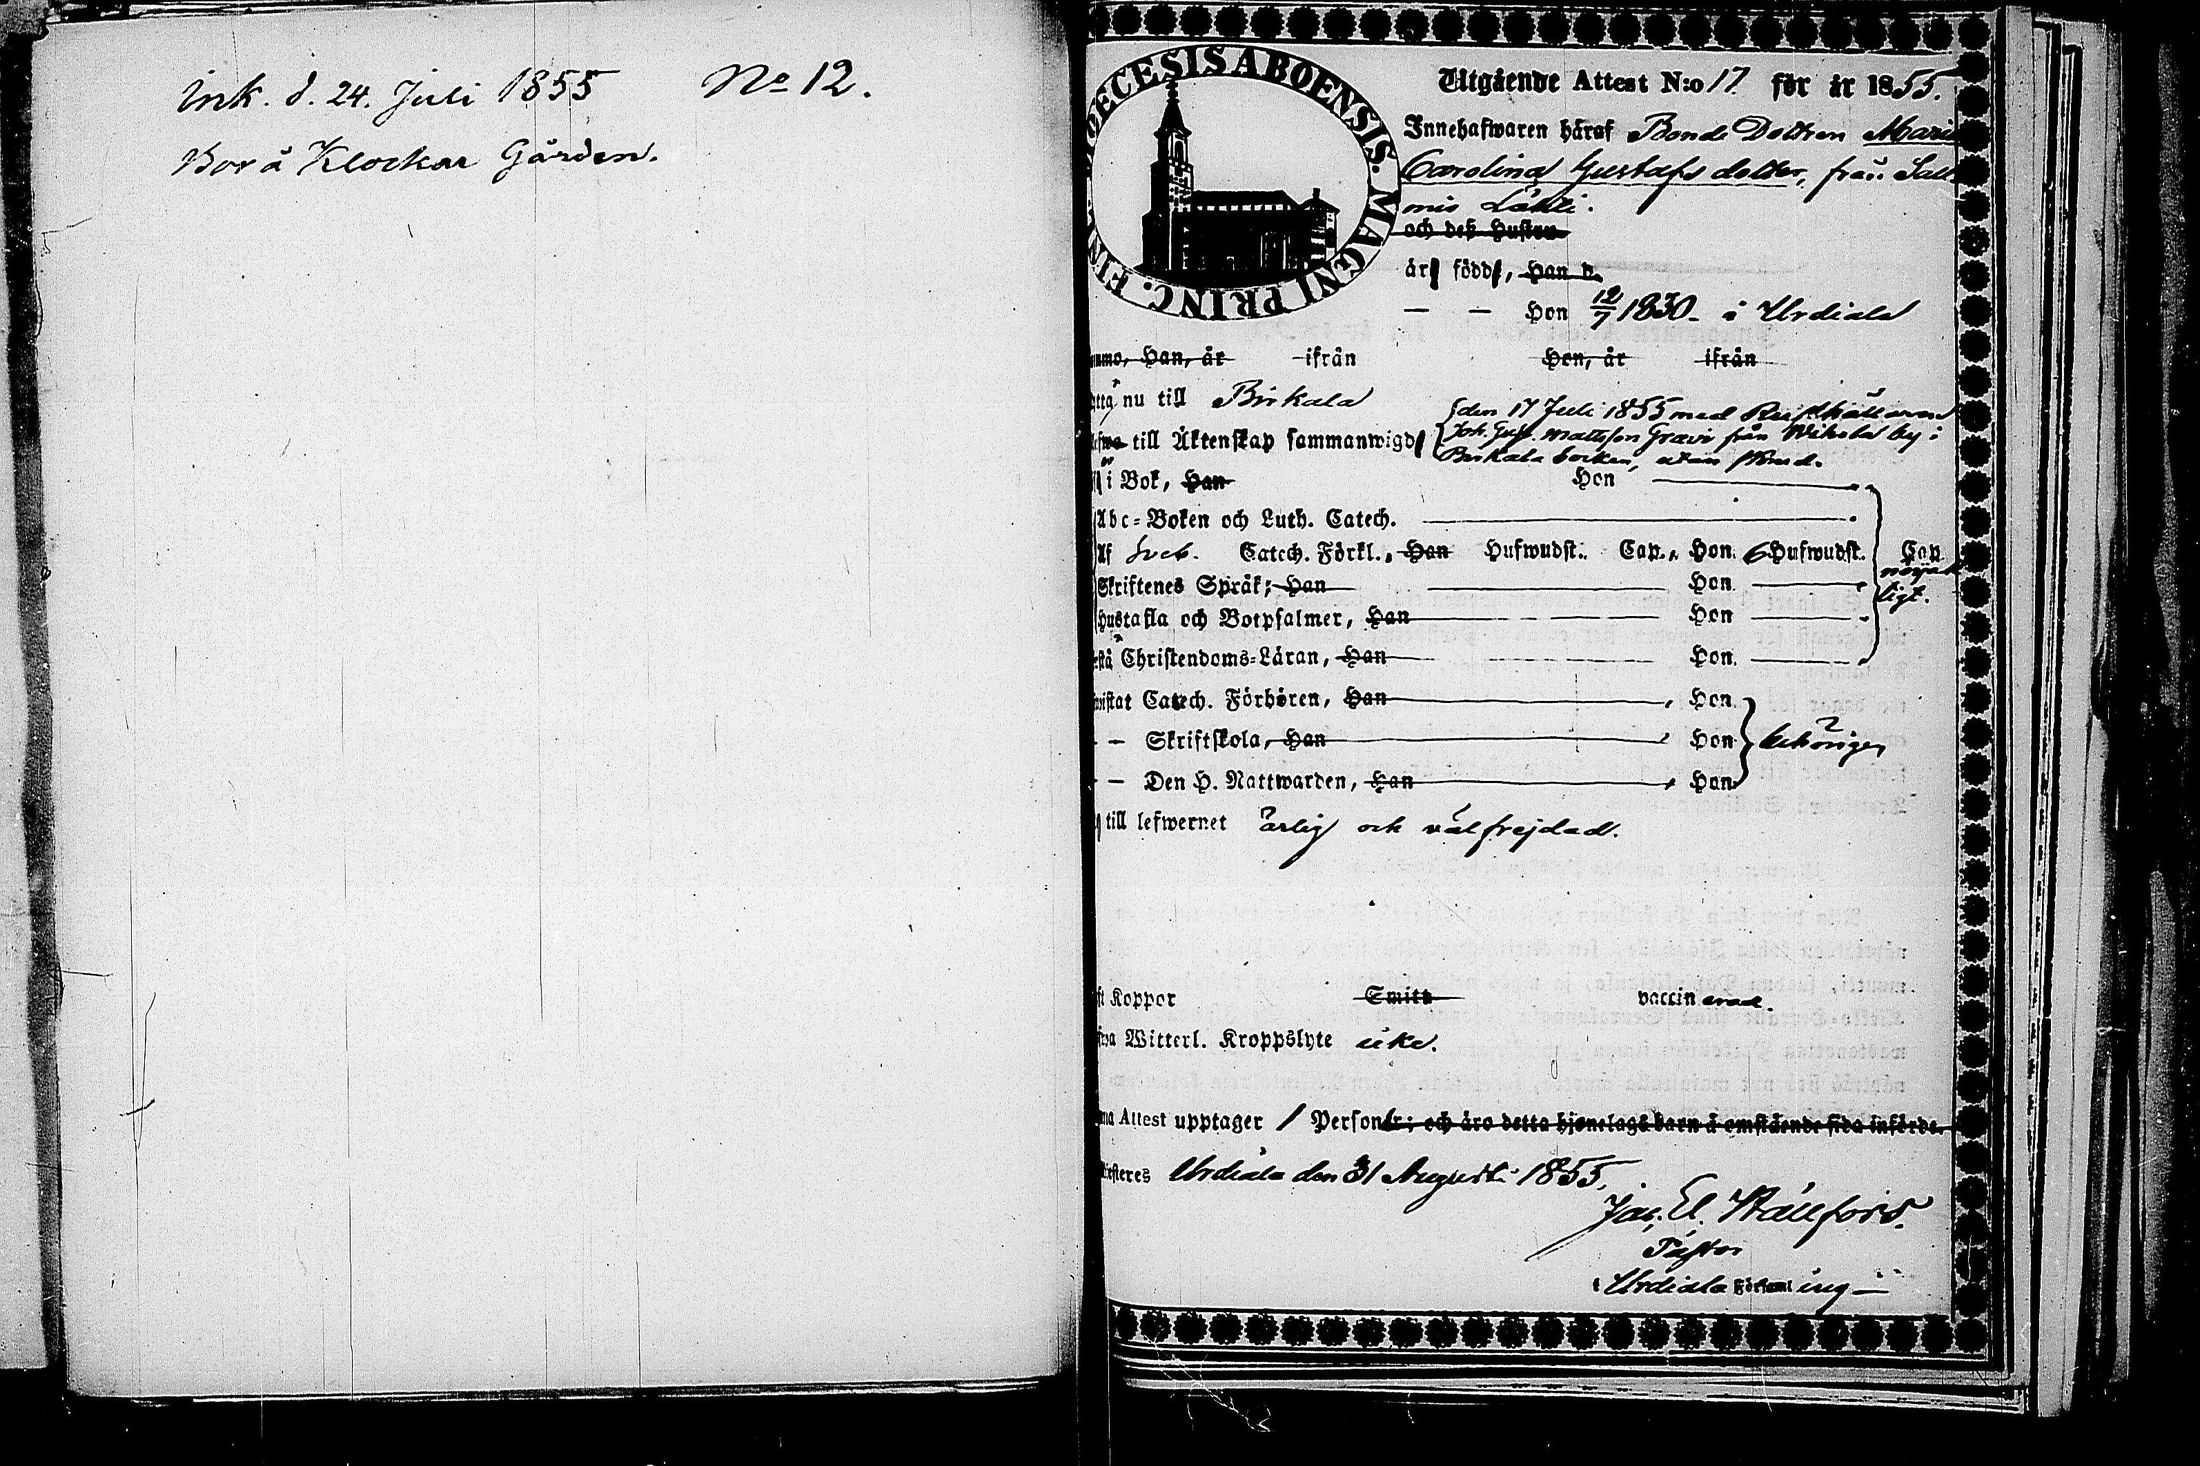 Ink. d. 24. Juli 1855 No 12.
Bor å Klockar Gården.
DIOECESIS ABOENSIS. MAGNI PRINC. FINL.
Utgående Attest N:o 17. för år 1855.
Innehafwaren häraf Bonde Dottren Maria
Carolina Gustafs dotter, från Sall-
mis Lahli.
och deß Hustru
är född, Han d.
— — Hon 12/7 1830 - i Urdiala
Han, är ifrån Hon, är ifrån
nu till Birkala
den 17 Juli 1855 med Reservkarlen
till Äktenskap sammanwigd Joh. Gust. Mattsson Gravi från Nikkilä by i
Birkala Socken, utan
i Bok, Han Hon
Abc-Boken och Luth. Catech.
Af Sveb. Catech. Förkl., Han Hufwudst. Cap., Hon 6 Hufwudst. Cap.
nöjak-
Skriftenes Språk; Han Hon
ligt.
Hustafla och Botpsalmer, Han Hon
Christendoms-Läran, Han Hon
Catech. Förhören, Han Hon
— Skriftskola, Han Hon behörigen
— Den H. Nattwarden, Han Hon
till lefwernet ärlig och välfrejdad.
Koppor Smitt vaccinerad.
Witterl. Kroppslyte icke.
Attest upptager 1 Personer; och äro detta hjonelags barn å omstående sida införde.
Urdiala den 31 Augusti 1855.
Jac. El. Wållfors.
Pastor
i Urdiala Församling —